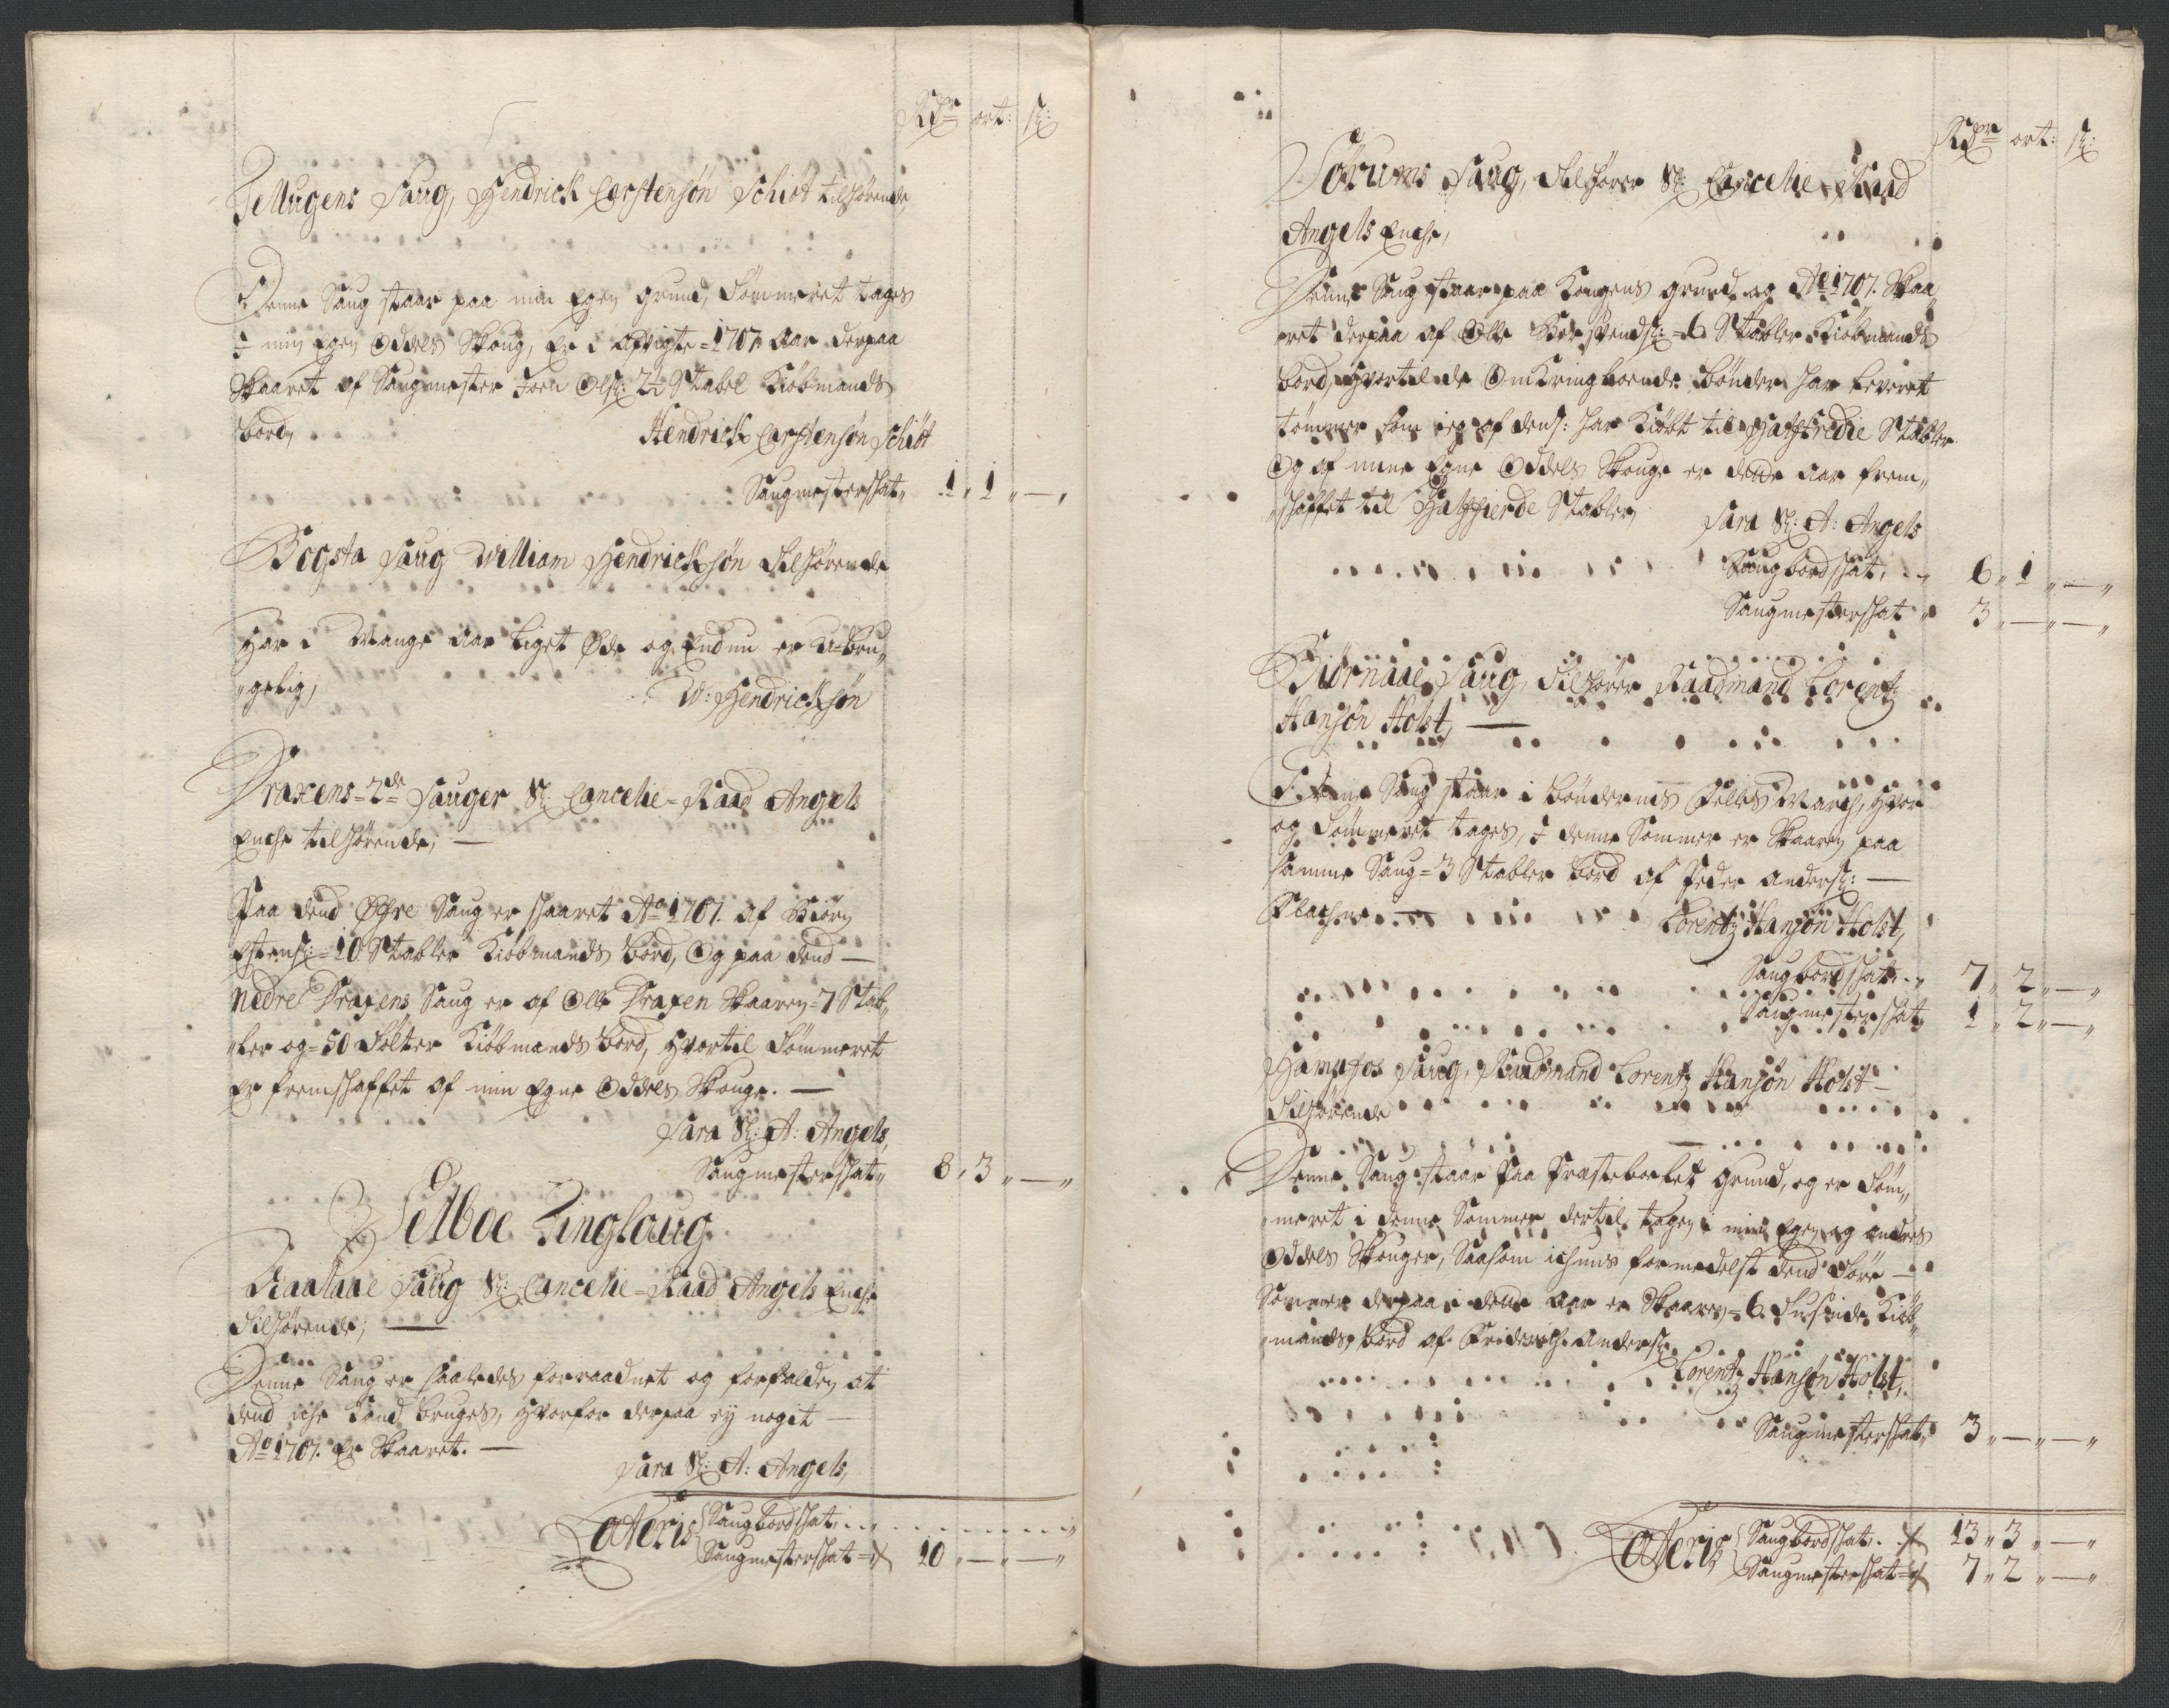 Rdr ort: ß:
Tellugens Saug, Hendrich Carstensøn Schiøt tilhørende
Denne Saug staar paa min Egen grund, Tømmeret tages
I min Egen Oddels Skoug, Er i afvigte 1707 Aar derpaa
Skaaret af Saugmester Joen Olß: 2½ Stabel Kiøbmands
bord,
Hendrich Carstensøn Schiøt
Saugmesterskat 1 „ 1 „ — „
Bogsta Saug William Hendrichsøn Tilhørende
Har i Mange Aar liget Øde og Endnu er U-bru„
„gelig,
W: Hendrichsøn
Draxens 2de Sauger Sl: Cancelie-Raad Angels
Enche tilhørende, —
Paa dend Øfre Saug er skaaret Ao 1707. af Biørn
Estensß: 10 Stabler Kiøbmands bord, Og paa dend —
Nedre Draxens Saug er af Olle Draxen Skaaren 7 Stab„
„ler og 50 Tolter Kiøbmands bord, hvortil Tømmeret
Er fremskaffet af min Egne Oddels Skouge. —
Sara Sl: A: Angels,
Saugmesterskat „ 8 „ 3 „ — „
Selboe Tinglaug
Raalaae Saug Sl: Cancelie-Raad Angels Enche
Tilhørende, —
Denne Saug er saaledes forraadnet og forfalden at
dend iche kand bruges, hvorfor derpaa ey noget —
Ao 1707. Er Skaaret. —
Sara Sl: A: Angels,
Lateris Saugbordskat . . .
Saugmesterskat 10 „ — „ — „
Rdr ort: ß:
Sørums Saug, Tilhører Sl: Cancelie-Raad
Angels Enche,
Denne Saug staar paa Kongens grund og Ao 1707. Skaa„
„ret derpaa af Olle Svendß: 6 Stabler Kiøbmands
bord, hvortil de Omkringboende Bønder har leveret
tømmer som ieg af dens: har kiøbt til Halftredie Stabler
Og af mine Egne Oddels Skouge er dette Aar frem„
„skaffet til Halffierde Stabler,
Sara Sl: A: Angels
Saugbordskat, 6 „ 1 „ — „
Saugmesterskat „ 3 „ — „ — „
Biørnaae Saug, Tilhører Raadmand Lorentz
Hansøn Holst, —
Denne Saug staar i bøndernis Felles March, hvor
og Tømmeret tages, I denne Sommer er Skaaren paa
samme Saug 3 Stabler bord af Peder Andersß: —
Flachne
Lorentz Hansøn Holst,
Saugbordskat „ 7 „ 2 „ — „
Saugmesterskat „ 1 „ 2 „ — „
Hampfos Saug, Raadmand Lorentz Hansøn Holst —
Tilhørende
Denne Saug staar Paa Præstebolet grund, og er Tøm„
„meret i denne Sommer dertil tagen i min Egen og andres
Oddels Skouger, Saasom ichuns formedelst dend Tøre —
Sommer derpaa i dette Aar er Skaaren 6 Tusinde Kiøb„
„mands bord af Friderich Andersß:
Lorentz Hansøn Holst,
Saugmesterskat „ 3 „ — „ — „
Lateris Saugbordskat . 13 „ 3 „ — „
Saugmesterskat 7 „ 2 „ — „